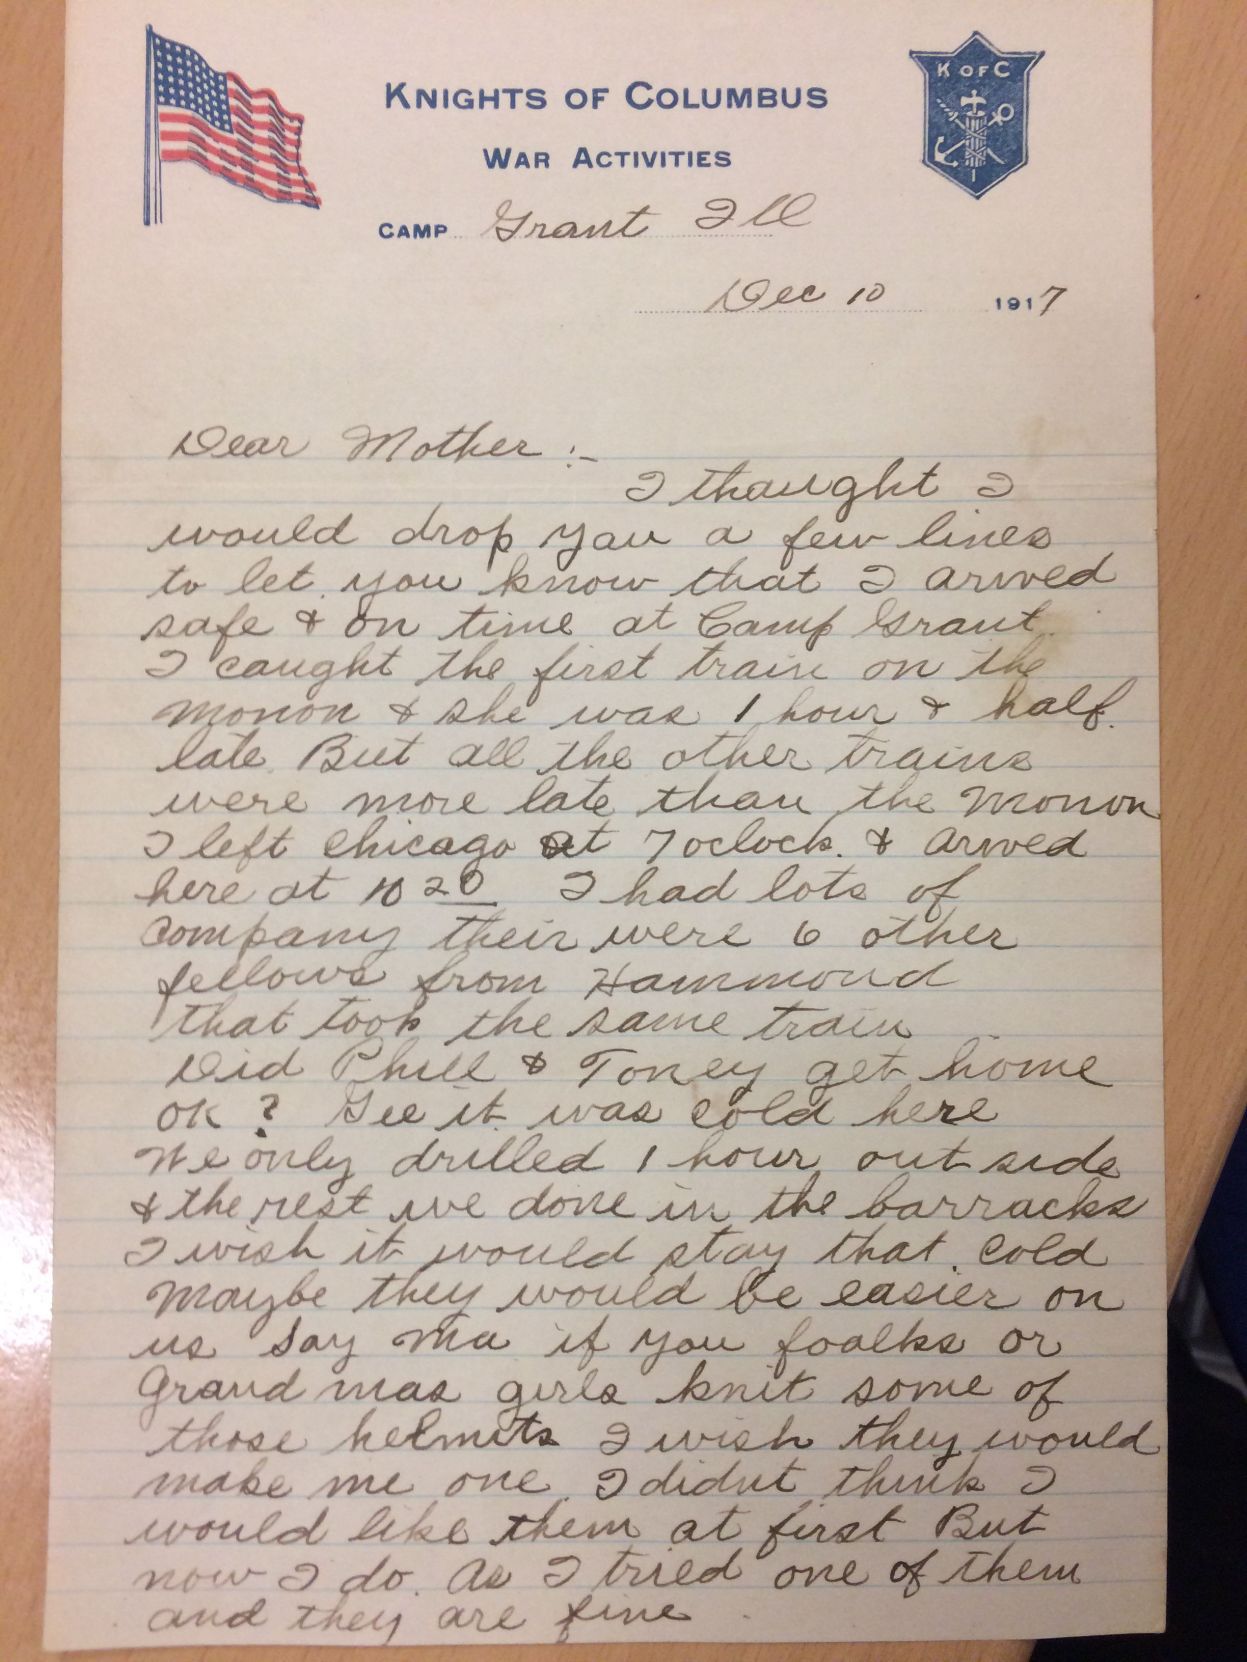 K OF C
KNIGHTS OF COLUMBUS
WAR ACTIVITIES
CAMP Grant Ill
Dec 10 1917
Dear Mother :-
I thaught I
would drop you a few lines
to let you know that I arived
safe & on time at Camp Grant
I caught the first train on the
monon & she was 1 hour & half.
late. But all the other trains
were more late than the monon
I left Chicago at 7 oclock. & arived
here at 10 20 I had lots of
company their were 6 other
fellows from Hammond
that took the same train
Did Phill & Toney get home
OK ? Gee it was cold here
We only drilled 1 hour out side
& the rest we done in the barracks
I wish it would stay that cold
Maybe they would be easier on
us Say Ma if you foalks or
Grand mas girls knit some of
those helmets I wish they would
make me one. I didnt think I
would like them at first But
now I do. As I tried one of them
and they are fine